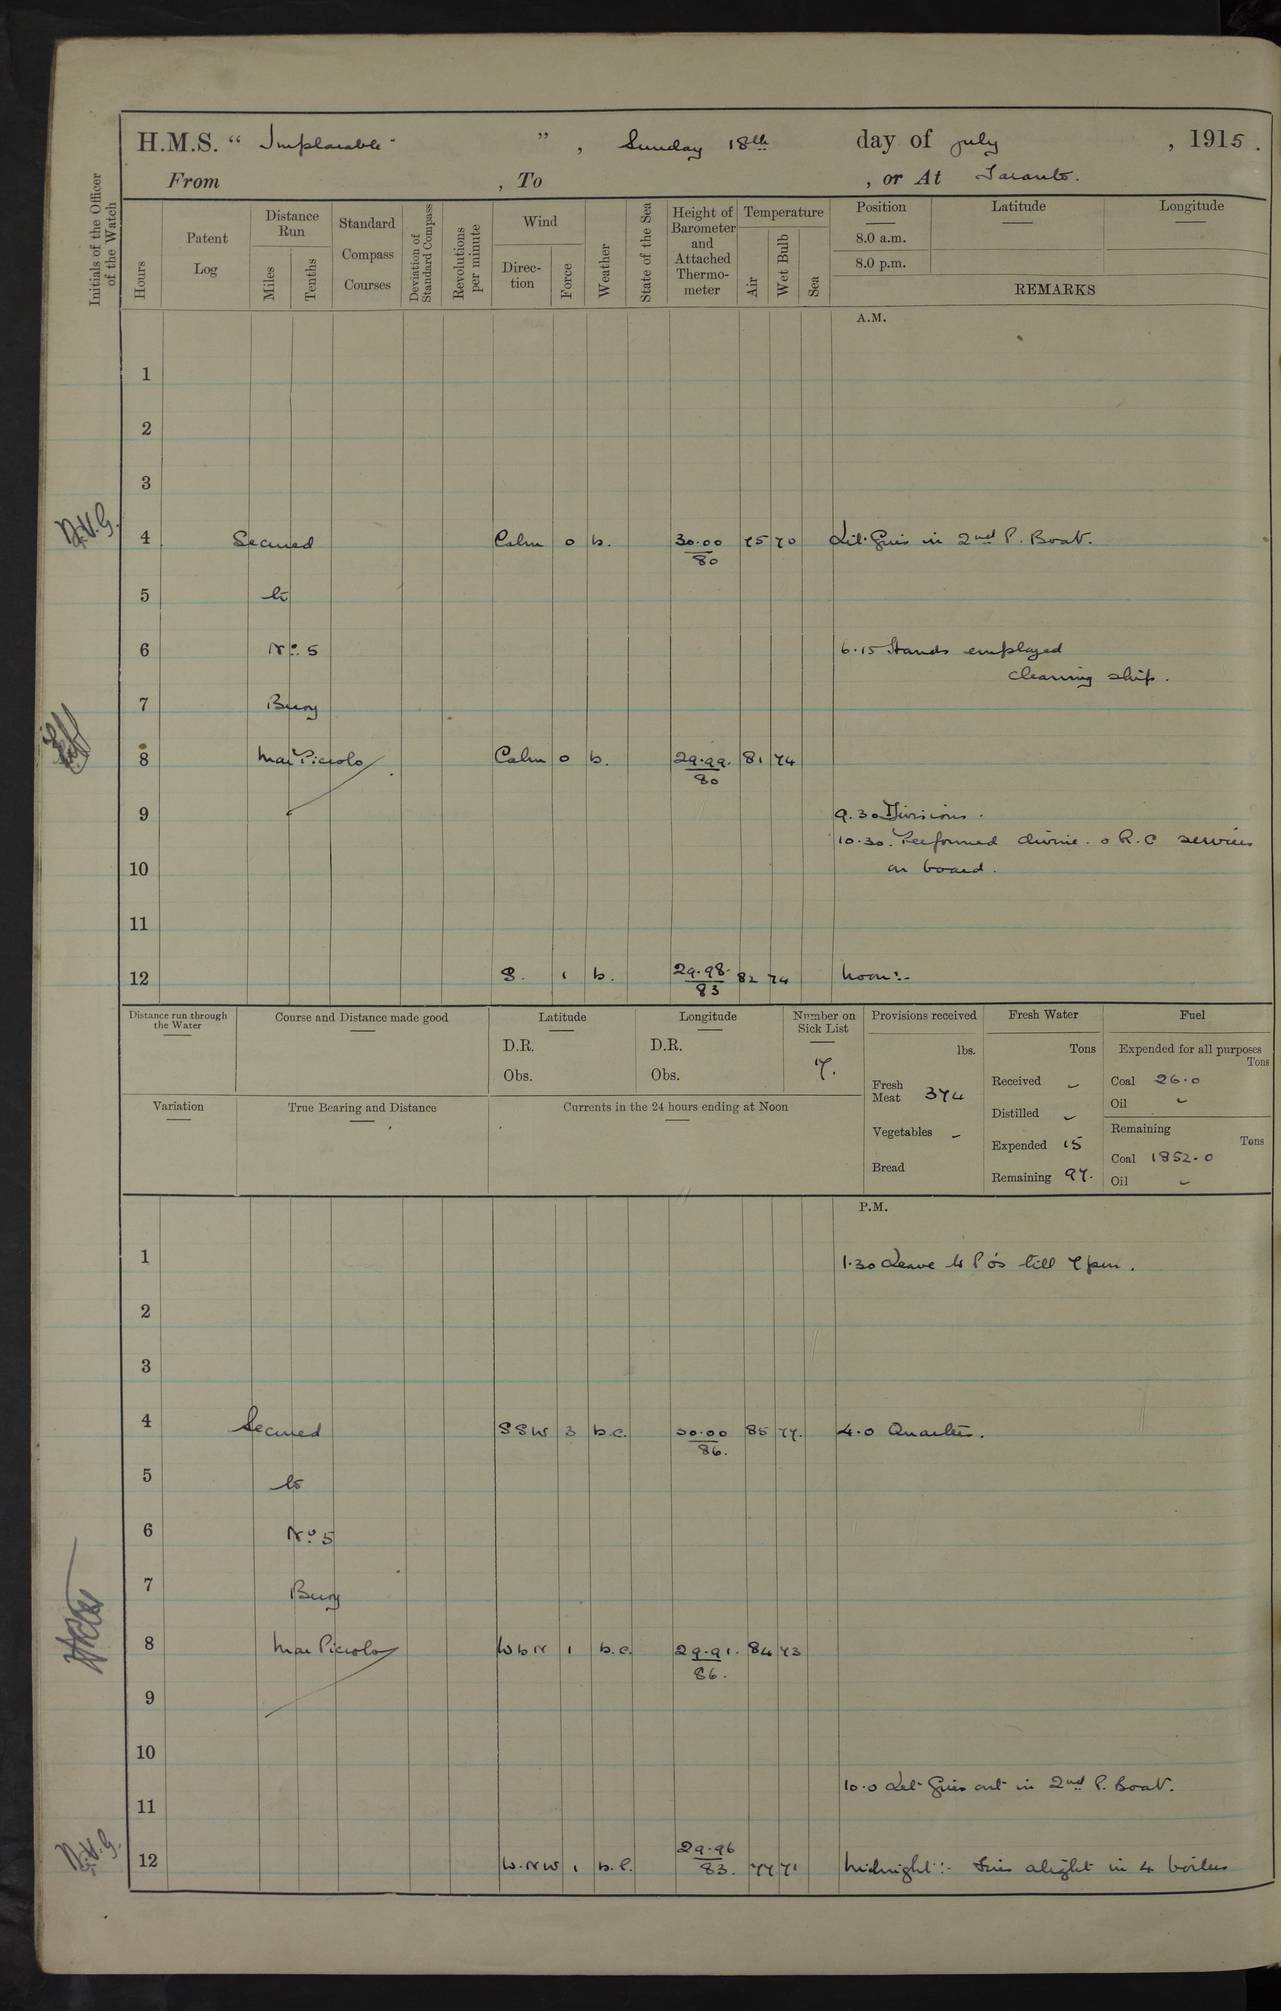 H.M.S. “ Implacable ” , Sunday 18th day of July , 1915.
From , To , or At Taranto.
Initials of the Officer of the Watch
Hours
Patent Log
Distance Run
Miles
Tenths
Standard Compass Courses
Deviation of Standard Compass
Revolutions per minute
Wind
Direc-tion
Force
Weather
State of the Sea
Height of Barometer and Attached Thermo-meter
Temperature
Air
Wet Bulb
Sea
Position
8.0 a.m.
8.0 p.m.
Latitude
Longitude
REMARKS
A.M.
1
2
3
N.V.G. 4 Secured Calm 0 b. 30.00/80 75 70 Lit fires in 2nd P. Boat.
5 to
6 No. 5 6.15 Hands employed
cleaning ship.
7 Buoy
8 Mar Piccolo Calm 0 b. 29.99./80 81 74
9 9.30 Divisions.
10.30. Performed divine. & R.C services
10 on board.
11
12 S. 1 b. 29.98./83 82 74 Noon:-
Distance run through the Water
Course and Distance made good
Latitude
D.R.
Obs.
Longitude
D.R.
Obs.
Number on Sick List
7.
Provisions received
lbs.
Fresh Meat 374
Vegetables -
Bread
Fresh Water
Tons
Received -
Distilled -
Expended 15
Remaining 97.
Fuel
Expended for all purposes
Tons
Coal 26.0
Oil -
Remaining
Tons
Coal 1852.0
Oil -
Variation
True Bearing and Distance
Currents in the 24 hours ending at Noon
P.M.
1 1.30 Leave to P.O's till 7 pm.
2
3
4 Secured SSW 3 b.c. 30.00/86. 85 77. 4.0 Quarters.
5 to
6 No. 5
7 Buoy
8 Mar Piccolo WbN 1 b.c. 29.91./86. 84 73
9
10
10.0 Let fires out in 2nd P. Boat.
11
N.V.G. 12 W.N.W 1 29.96/83. 77 71 Midnight:- Fires alight in 4 boilers